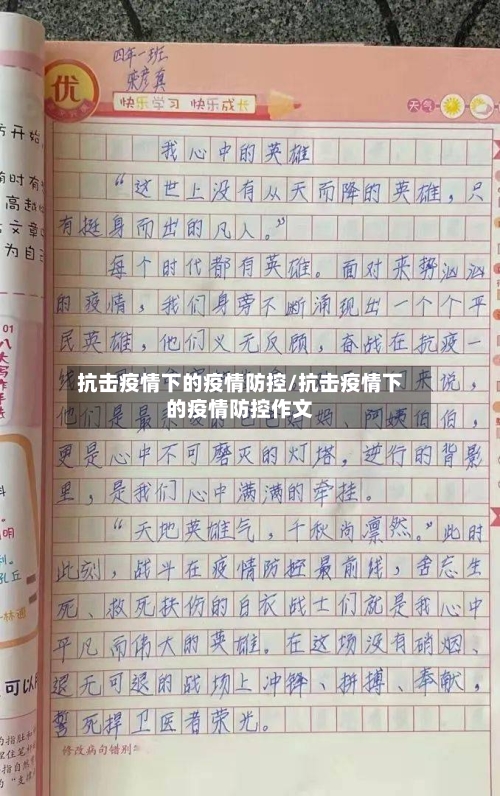 四年一班
优
快乐学习 快乐成长
天气
我心中的英雄
“这世上没有从天而降的英雄，只
有挺身而出的凡人。”
每个时代都有英雄。面对来势汹汹
的疫情，我们身旁不断涌现出一个个平
民英雄，他们义无反顾，奋战在抗疫一
抗击疫情下的疫情防控/抗击疫情下
的疫情防控作文
来说，
他们是最亲爱的爸爸妈妈、阿姨伯伯，
更是心中不可磨灭的灯塔，逆行的背影
里，是我们心中满满的牵挂。
“天地英雄气，千秋尚凛然。”此时
此刻，战斗在疫情防控最前线，舍忘生
死、救死扶伤的白衣战士们就是我心中
平凡而伟大的英雄。在这场没有硝烟、
退无可退的战场上冲锋、拼搏、奉献，
誓死捍卫医者荣光。
修改病句错别